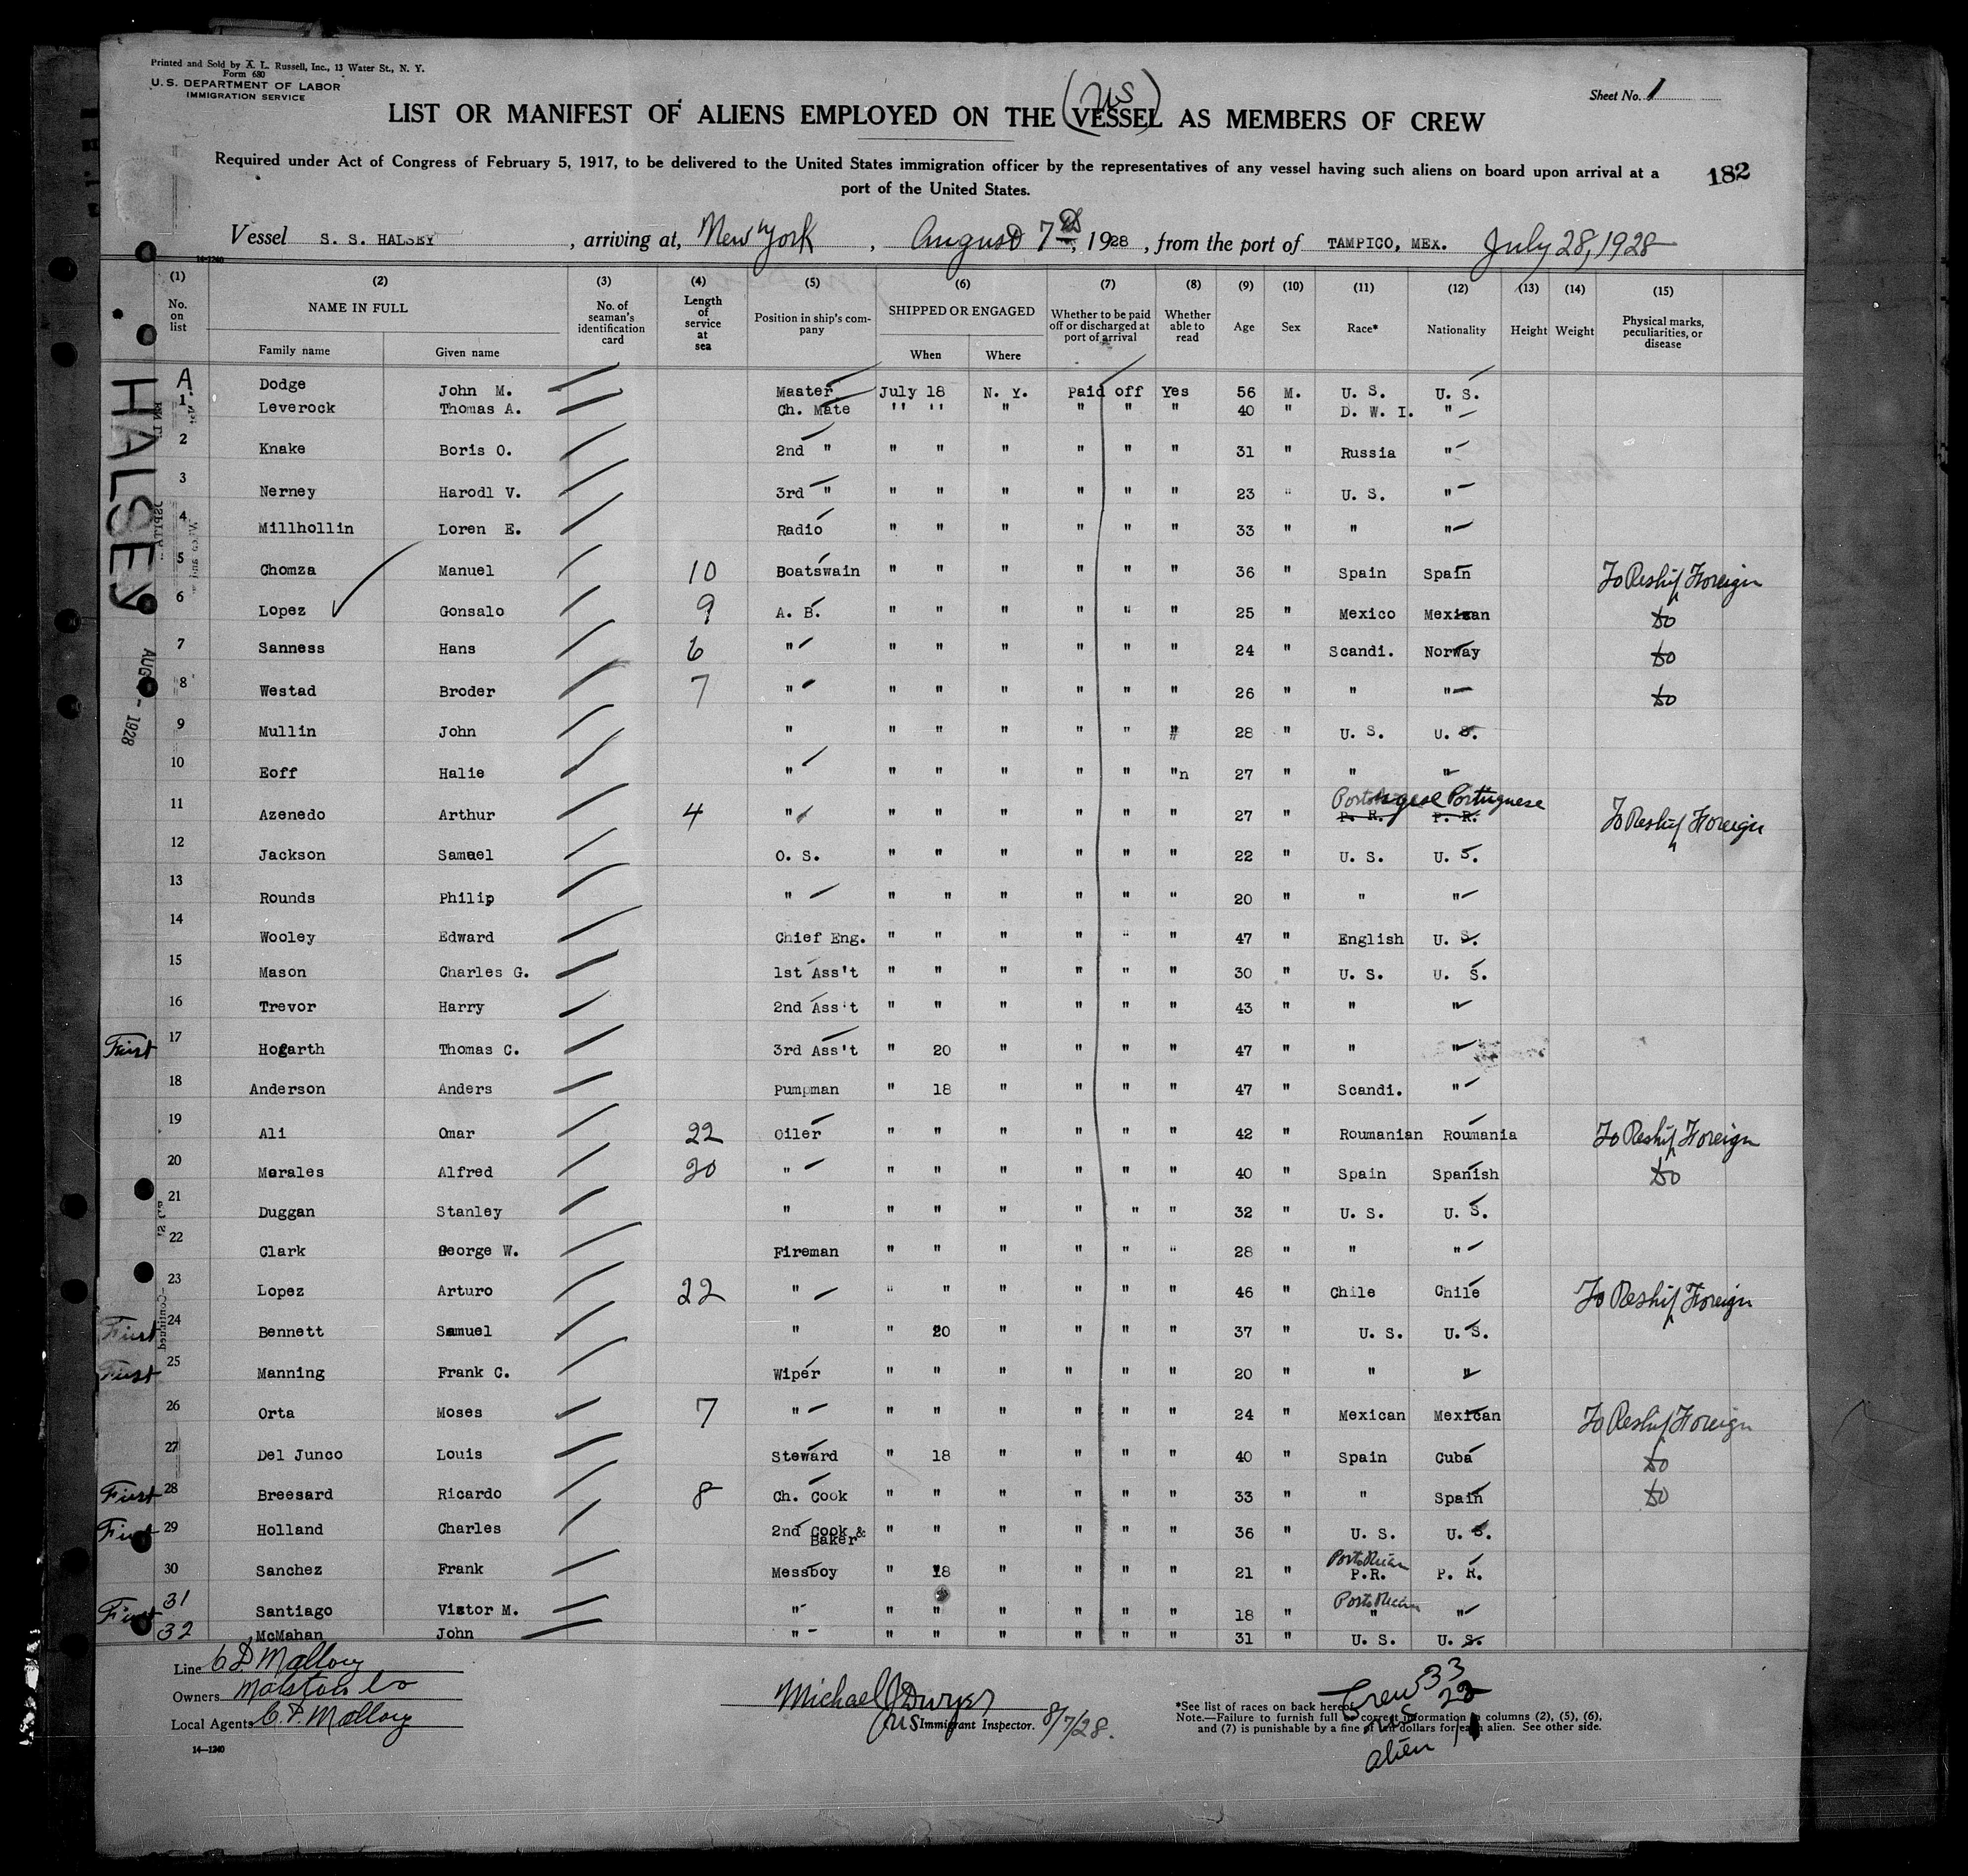 Printed and Sold by A. L. Russell, Inc., 13 Water St., N. Y.
Form 680
U. S. DEPARTMENT OF LABOR
IMMIGRATION SERVICE
Sheet No. 1
(US)
LIST OR MANIFEST OF ALIENS EMPLOYED ON THE VESSEL AS MEMBERS OF CREW
Required under Act of Congress of February 5, 1917, to be delivered to the United States immigration officer by the representatives of any vessel having such aliens on board upon arrival at a
port of the United States.
182
Vessel S. S. HALSEY, arriving at, New York, August 7th, 1928, from the port of TAMPICO, MEX. July 28, 1928
14-1240
(1) (2) (3) (4) (5) (6) (7) (8) (9) (10) (11) (12) (13) (14) (15)
No. on list NAME IN FULL No. of seaman's identification card Length of service at sea Position in ship's company SHIPPED OR ENGAGED Whether to be paid off or discharged at port of arrival Whether able to read Age Sex Race* Nationality Height Weight Physical marks, peculiarities, or disease
Family name Given name When Where
HALSEY
AUG - 1928
A Dodge John M. Master July 18 N. Y. Paid off Yes 56 M. U. S. U. S.
1 Leverock Thomas A. Ch. Mate " " " " " " 40 " D. W. I. "
2 Knake Boris O. 2nd " " " " " " " 31 " Russia "
3 Nerney Harodl V. 3rd " " " " " " " 23 " U. S. "
4 Millhollin Loren E. Radio " " " " " " 33 " " "
5 Chomza Manuel 10 Boatswain " " " " " " 36 " Spain Spain To Reship Foreign
6 Lopez Gonsalo 9 A. B. " " " " " " 25 " Mexico Mexican do
7 Sanness Hans 6 " " " " " " " 24 " Scandi. Norway do
8 Westad Broder 7 " " " " " " " 26 " " " do
9 Mullin John " " " " " " " 28 " U. S. U. S.
10 Eoff Halie " " " " " " "n 27 " " "
11 Azenedo Arthur 4 " " " " " " " 27 " P. R. Portuguese P. R. Portuguese To Reship Foreign
12 Jackson Samuel O. S. " " " " " " 22 " U. S. U. S.
13 Rounds Philip " " " " " " " 20 " " "
14 Wooley Edward Chief Eng. " " " " " " 47 " English U. S.
15 Mason Charles G. 1st Ass't " " " " " " 30 " U. S. U. S.
16 Trevor Harry 2nd Ass't " " " " " " 43 " " "
First 17 Hogarth Thomas C. 3rd Ass't " 20 " " " " 47 " " "
18 Anderson Anders Pumpman " 18 " " " " 47 " Scandi. "
19 Ali Omar 22 Oiler " " " " " " 42 " Roumanian Roumania To Reship Foreign
20 Morales Alfred 20 " " " " " " " 40 " Spain Spanish do
21 Duggan Stanley " " " " " " " 32 " U. S. U. S.
22 Clark George W. Fireman " " " " " " 28 " " "
23 Lopez Arturo 22 " " " " " " " 46 " Chile Chile To Reship Foreign
First 24 Bennett Samuel " " 20 " " " " 37 " U. S. U. S.
First 25 Manning Frank C. Wiper " " " " " " 20 " " "
26 Orta Moses 7 " " " " " " " 24 " Mexican Mexican To Reship Foreign
27 Del Junco Louis Steward " 18 " " " " 40 " Spain Cuba do
First 28 Breesard Ricardo 8 Ch. Cook " " " " " " 33 " " Spain do
First 29 Holland Charles 2nd Cook & Baker " " " " " " 36 " U. S. U. S.
30 Sanchez Frank Messboy " 18 " " " " 21 " Porto Rican P.R. P. R.
First 31 Santiago Victor M. " " " " " " " 18 " Porto Rican " "
32 McMahan John " " " " " " " 31 " U. S. U. S.
Line C D Mallory
Owners Malston Co
Local Agents C. D. Mallory
14-1240
Michael J Dwyer
US Immigrant Inspector. 8/7/28.
*See list of races on back hereof.
Note.—Failure to furnish full or correct information in columns (2), (5), (6),
and (7) is punishable by a fine of ten dollars for each alien. See other side.
Crew 33
US 22
alien 11